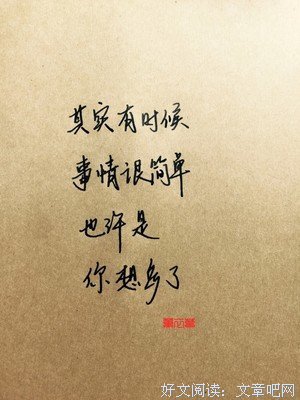 其实有时候
事情很简单
也许是
你想多了
好文阅读：文章吧网